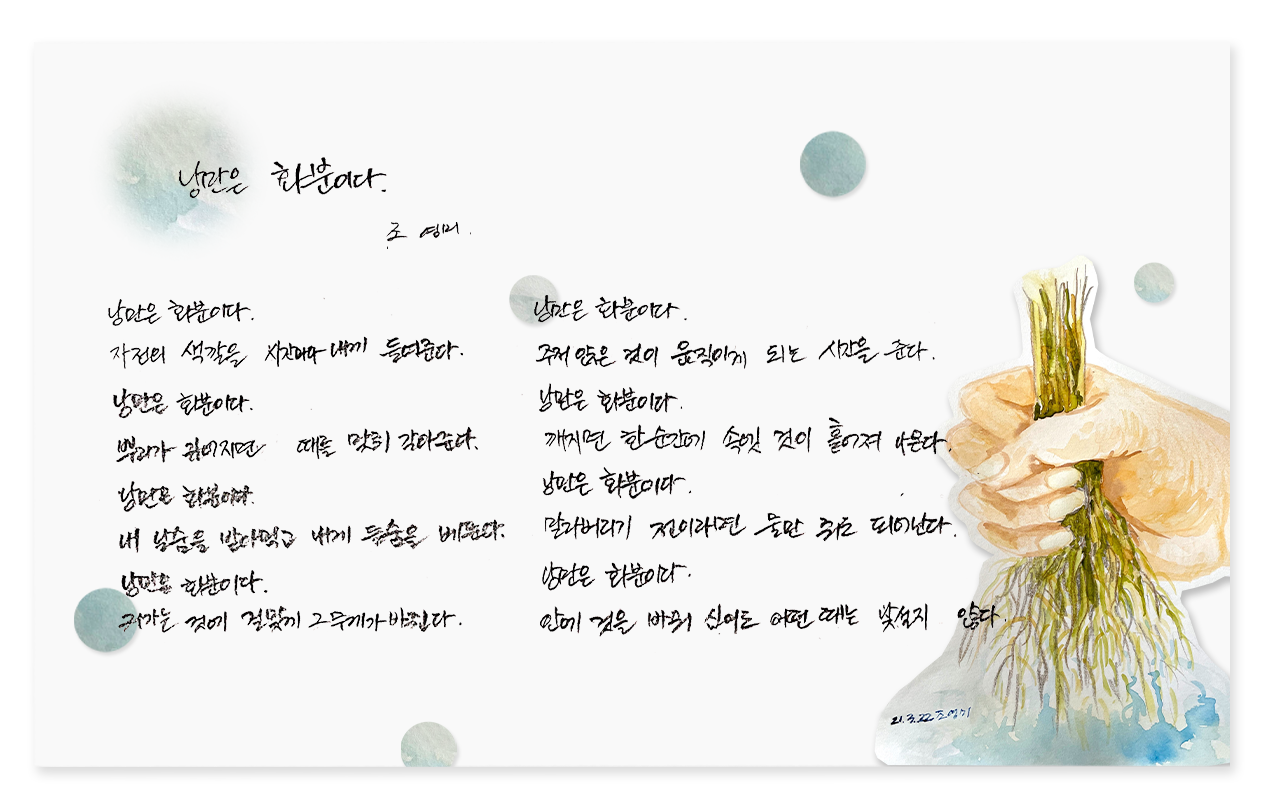 낭만은 화분이다.
조 영미.
낭만은 화분이다.
자전의 색깔을 시간마다 내게 들려준다.
낭만은 화분이다.
뿌리가 굵어지면 때를 맞춰 갈아준다.
낭만은 화분이다.
내 날숨을 받아먹고 내게 들숨을 베푼다.
낭만은 화분이다.
커가는 것에 걸맞게 그 두께가 바뀐다.
낭만은 화분이다.
주저 앉은 것이 움직이게 되는 시간을 준다.
낭만은 화분이다.
깨지면 한 순간에 속엣 것이 흩어져 나온다.
낭만은 화분이다.
말라버리기 전이라면 물만 줘도 피어난다.
낭만은 화분이다.
안에 것을 바꿔 심어도 어떤 때는 낯설지 않다.
21.3.22 조영미